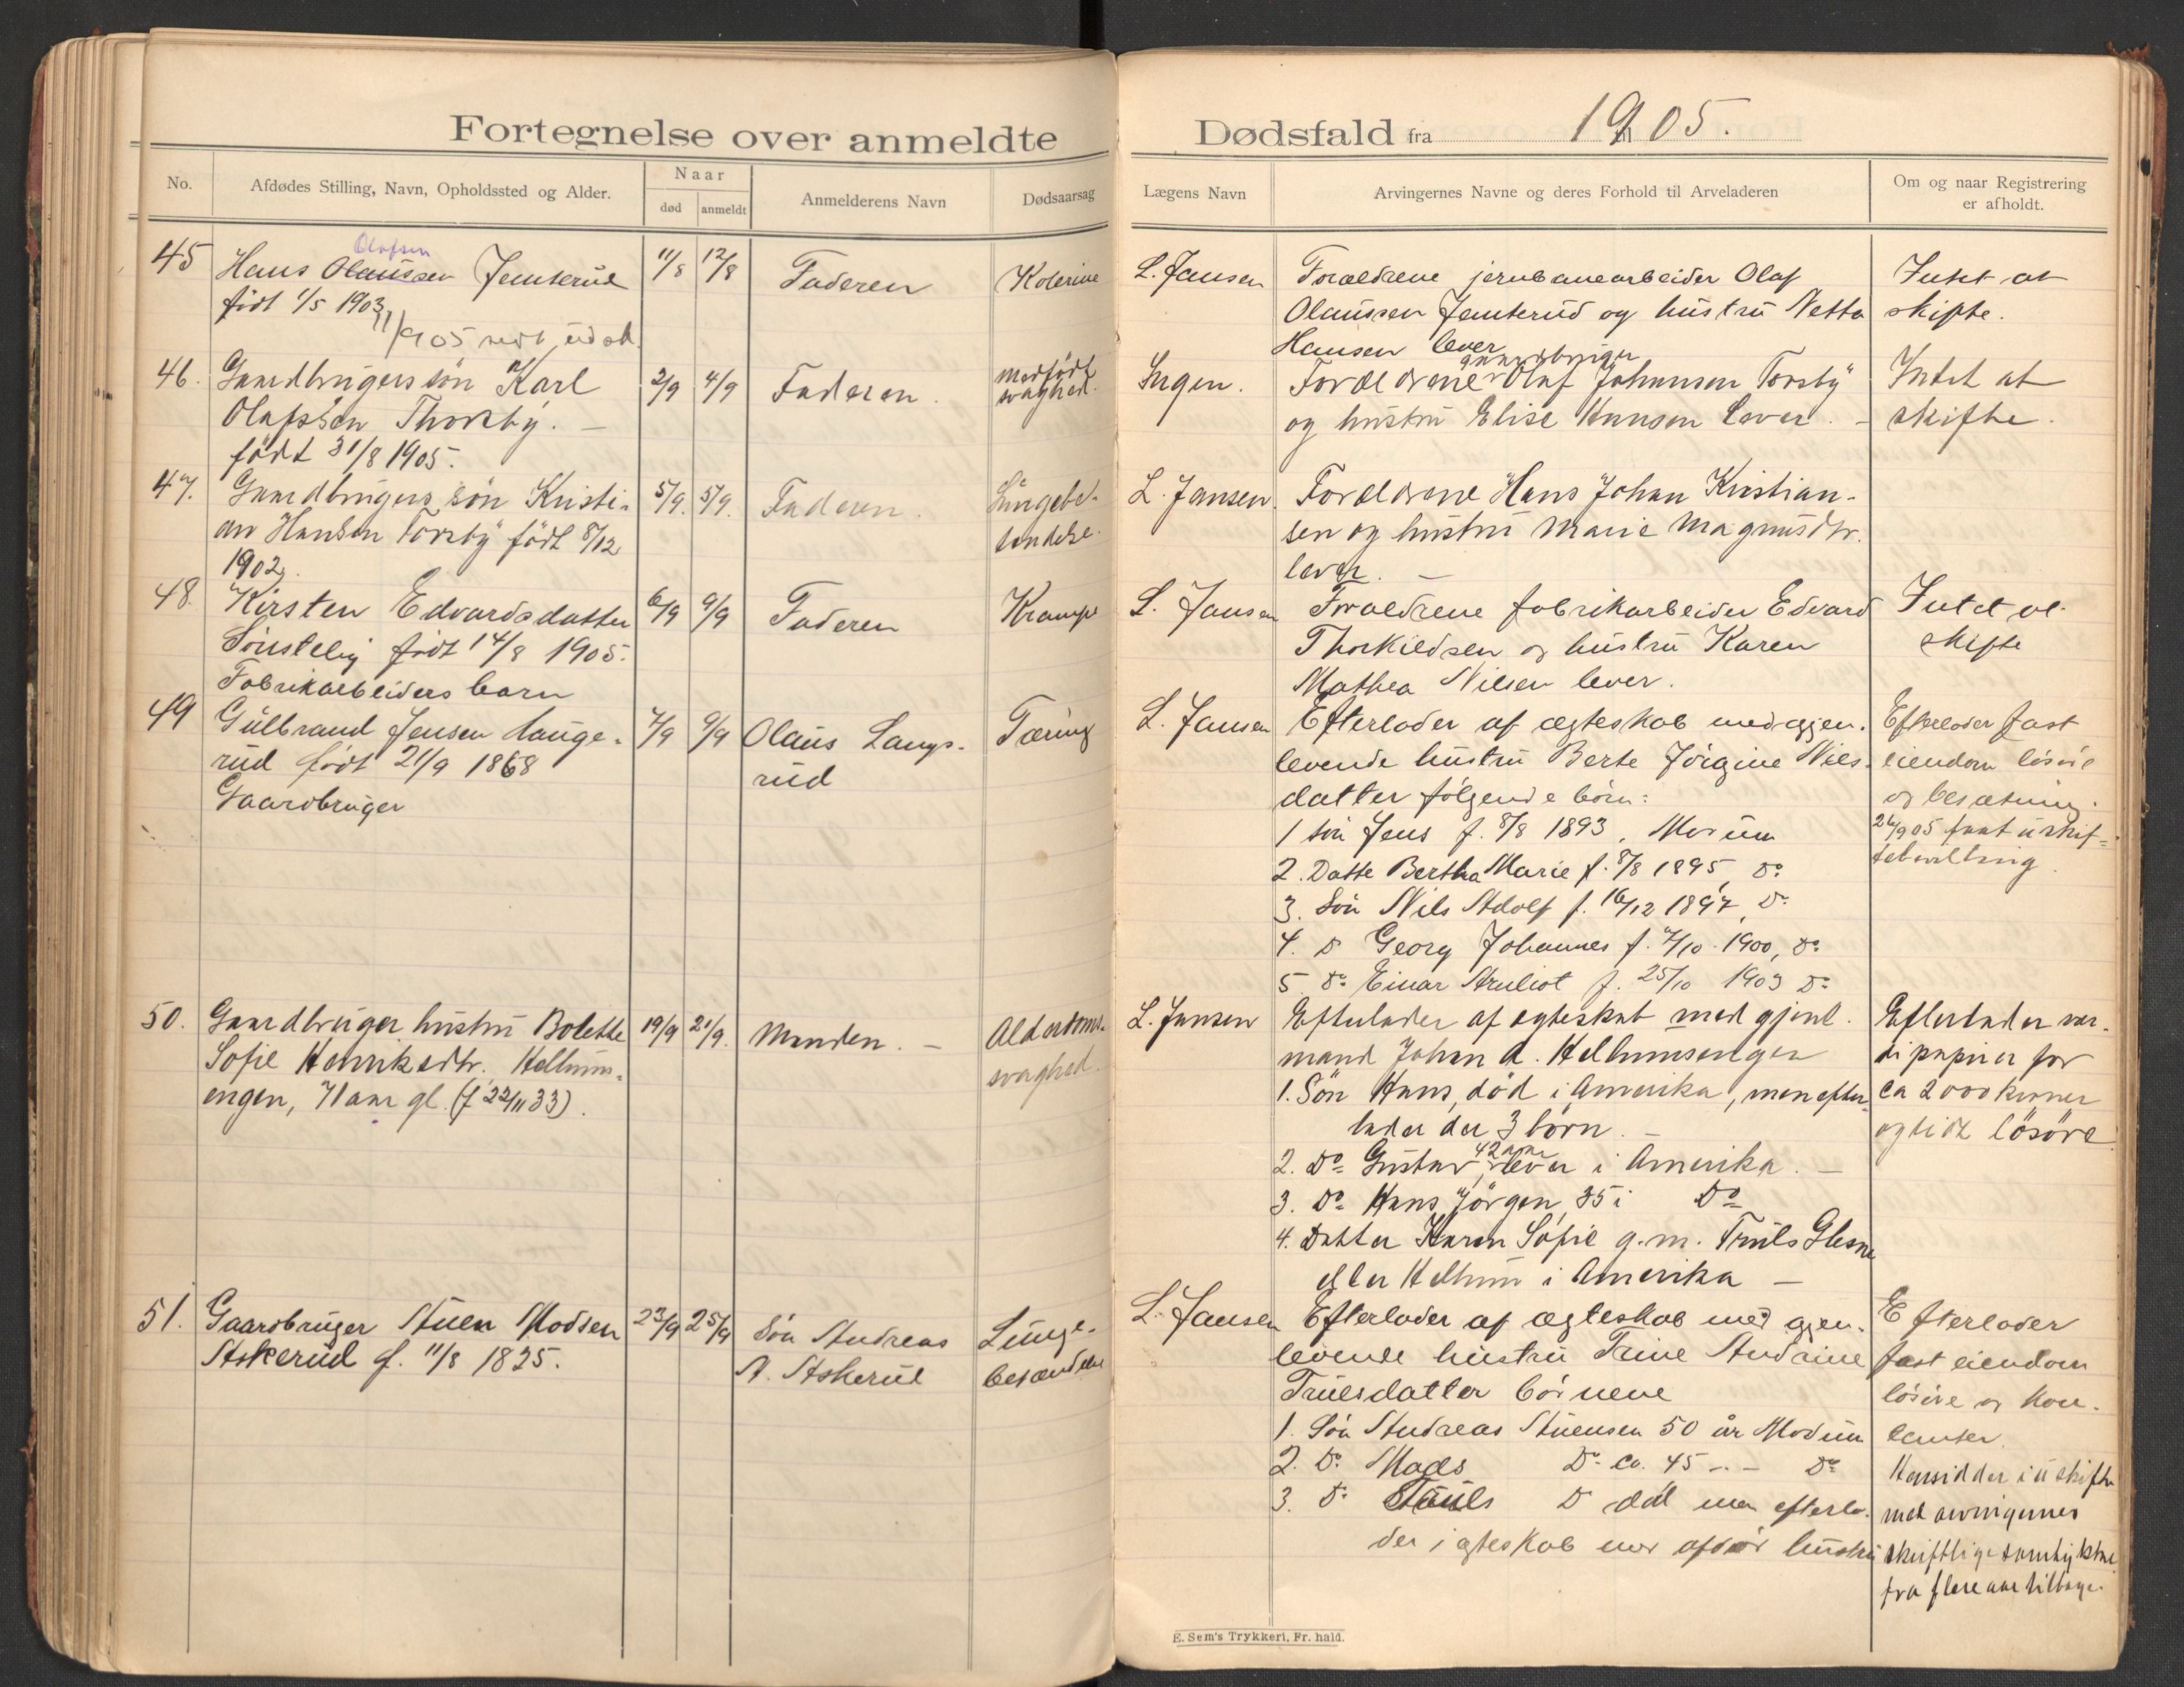 Fortegnelse over anmeldte
No.
Afdødes Stilling, Navn, Opholdssted og Alder.
Naar
død
anmeldt
Anmelderens Navn
Dødsaarsag
45
Olafsen
Hans Olaussen Jemterud
11/8
12/8
Faderen
Kolerine
født 1/5 1903
46.
Gaardbrugers søn Karl
2/9
4/9
Faderen.
medfødt
svaghed.
Olafssøn Thorsby. –
født 31/8 1905.
47.
Gaardbrugers søn Kristi-
5/9.
5/9.
Faderen.
Lungebe-
tændelse.
an Hansen Torsby født 8/12
1902.
48.
Kirsten Edvardsdatter
6/9
9/9
Faderen
Krampe
født 14/8 1905.
Fabrikarbeiders barn
49
Gulbrand Jensen Lange-
7/9
9/9
Olaus Langs-
rud
Tæring
rud født 21/9 1868
Gaardbruger
50.
Gaardbruger hustru Bolette
19/9
21/9.
Manden. –
Alderdoms-
svaghed.
Sofie Henriksdtr. Hellums-
engen, 71 aar gl. (f 22/11 33).
51.
Gaardbruger Stuen Madsen
23/9
25/9
Søn Andreas
A. Askerud
Lunge-
betændelse
Askerud f. 11/8 1825.
Dødsfald fra 1905.
Lægens Navn
Arvingernes Navne og deres Forhold til Arveladeren
Om og naar Registrering
er afholdt.
L. Jansen
Forældrene jernbanearbeider Olaf
Olaussen Jemterud og hustru Netta
Hansen lever
Intet at
skifte.
Ingen.
gaardbruger
Forældrene Olaf Johansen Torsby
og hustru Elise Hansen lever. –
Intet at
skifte.
L. Jansen.
Forældrene Hans Johan Kristian-
sen og hustru Marie Magnusdtr.
lever. –
L. Jansen
Forældrene fabrikarbeider Edvard
Thorkildsen og hustru Karen
Mathea Nilsen lever.
Intet at
skifte
L. Jansen
Efterlader af ægteskab med gjen-
levende hustru Berte Jørgine Niels-
datter følgende børn:
1 søn Jens f. 8/8 1893, Modum
2. Datte Bertha Marie f. 8/8 1895, Do
3. Søn Nils Adolf f. 16/12 1897, Do
4. Do Georg Johannes f. 7/10 1900, Do
5. Do Einar f. 25/10 1903 Do
Efterlader fast
eiendom løsøre
og besætning.
26/9 05 faat uskif-
tebevilling
L. Jansen
Efterlader af egteskab med gjenl.
mand Johan A. Hellumsengen
1. Søn Hans, død i Amerika, men efter-
lader der 3 børn. –
2. Do Gustav, 42 aar lever i Amerika. –
3. Do Hans Jörgen, 35 i Do
4. Datter Karen Sofie g. m. Truls Glesne
eller Hellum i Amerika –
Efterlader vær-
dipapirer for
ca 2000 kroner
og lidt løsøre
L. Jansen
Efterlader af ægteskab med gjen-
levende hustru Trine Andrine
Trulsdatter børnene
1. Søn Andreas Stuensen 50 år Modum
2. Do Mads Do ca. 45 -- – Do
3. Do Truls Do død men efterla-
der i egteskab med afdør hustru
Efterlader
fast eiendom
løsøre og kon-
tanter.
Hensidder i uskifte
med arvingernes
skriftlige samtykke
fra flere aar tilbage.
E. Sem's Trykkeri, Fr. hald.